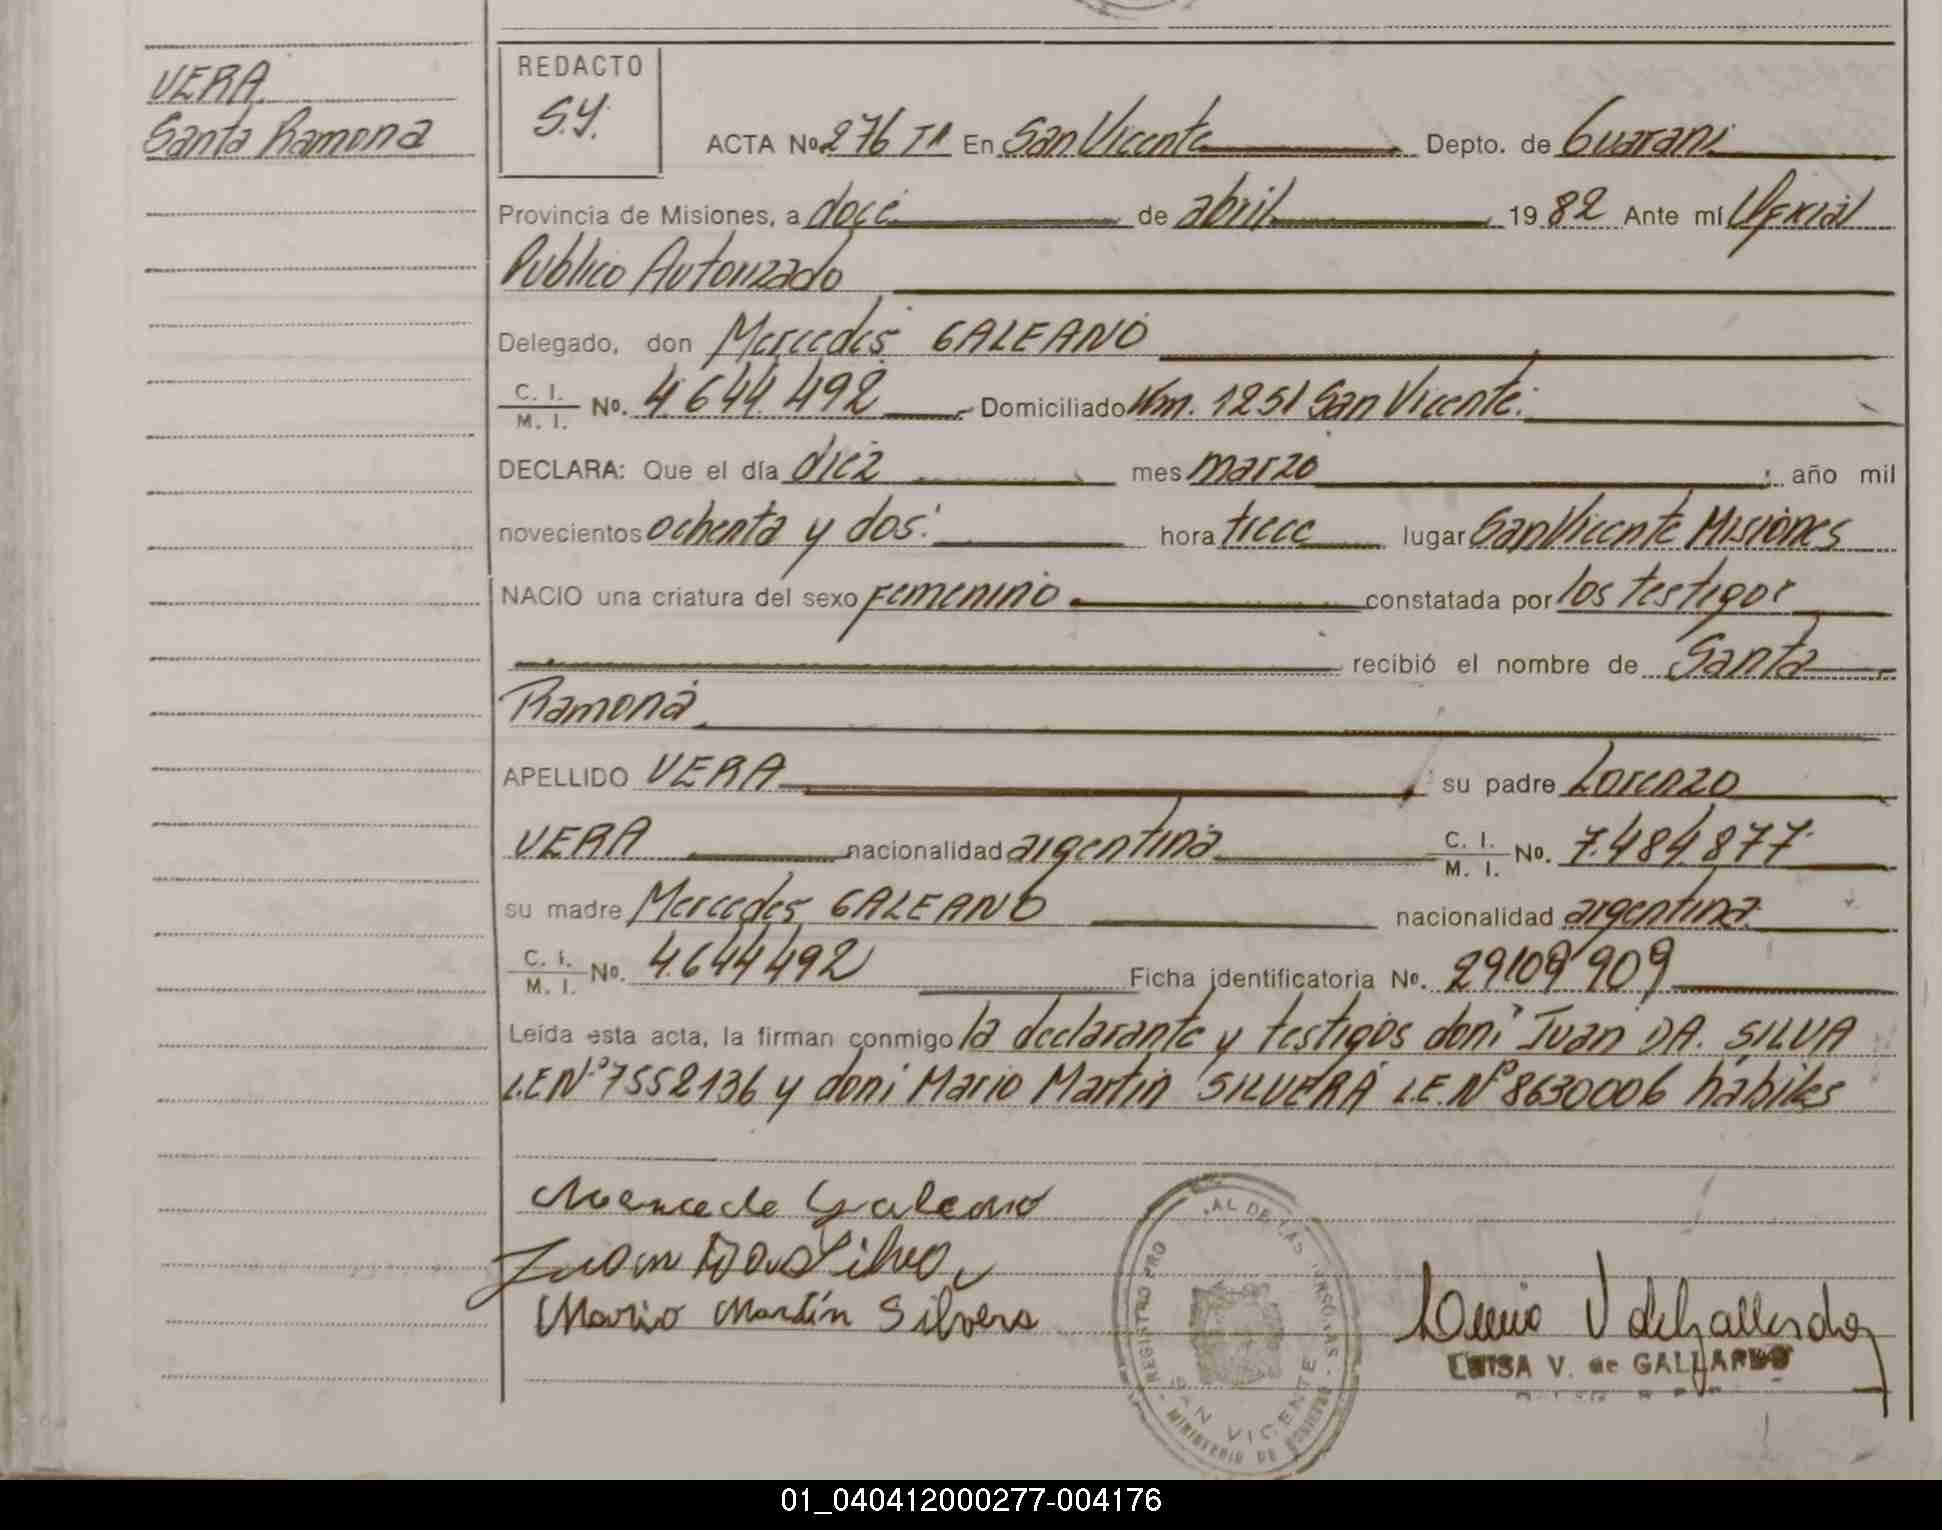 VERA
Santa Ramona
REDACTO
S.Y.
ACTA Nº 276 Tº En San Vicente Depto. de Guarani
Provincia de Misiones, a doce de abril 1982 Ante mí Oficial
Publico Autorizado
Delegado, don Mercedes GALEANO
C. I. / M. I. Nº. 4.644.492 Domiciliado Km. 1251 San Vicente.
DECLARA: Que el día diez mes marzo año mil
novecientos ochenta y dos. hora trece lugar San Vicente Misiones
NACIO una criatura del sexo Femenino constatada por los testigos
recibió el nombre de Santa
Ramona
APELLIDO VERA su padre Lorenzo
VERA nacionalidad argentina C. I. / M. I. Nº. 7.484.877
su madre Mercedes GALEANO nacionalidad argentina
C. I. / M. I. Nº. 4.644.492 Ficha identificatoria Nº. 29109909
Leída esta acta, la firman conmigo la declarante y testigos don: Juan DA. SILVA
L.E.Nº 7552136 y don: Mario Martin SILVERA L.E.Nº 8630006 habiles
Mercede Galeano
Juan Da Silva
Mario Martín Silvera
REGISTRO PRO AL DE LAS PERSONAS - MINISTERIO DE GOBIERNO
SAN VICENTE
Luisa V de Gallardo
LUISA V. de GALLARDO
01_040412000277-004176